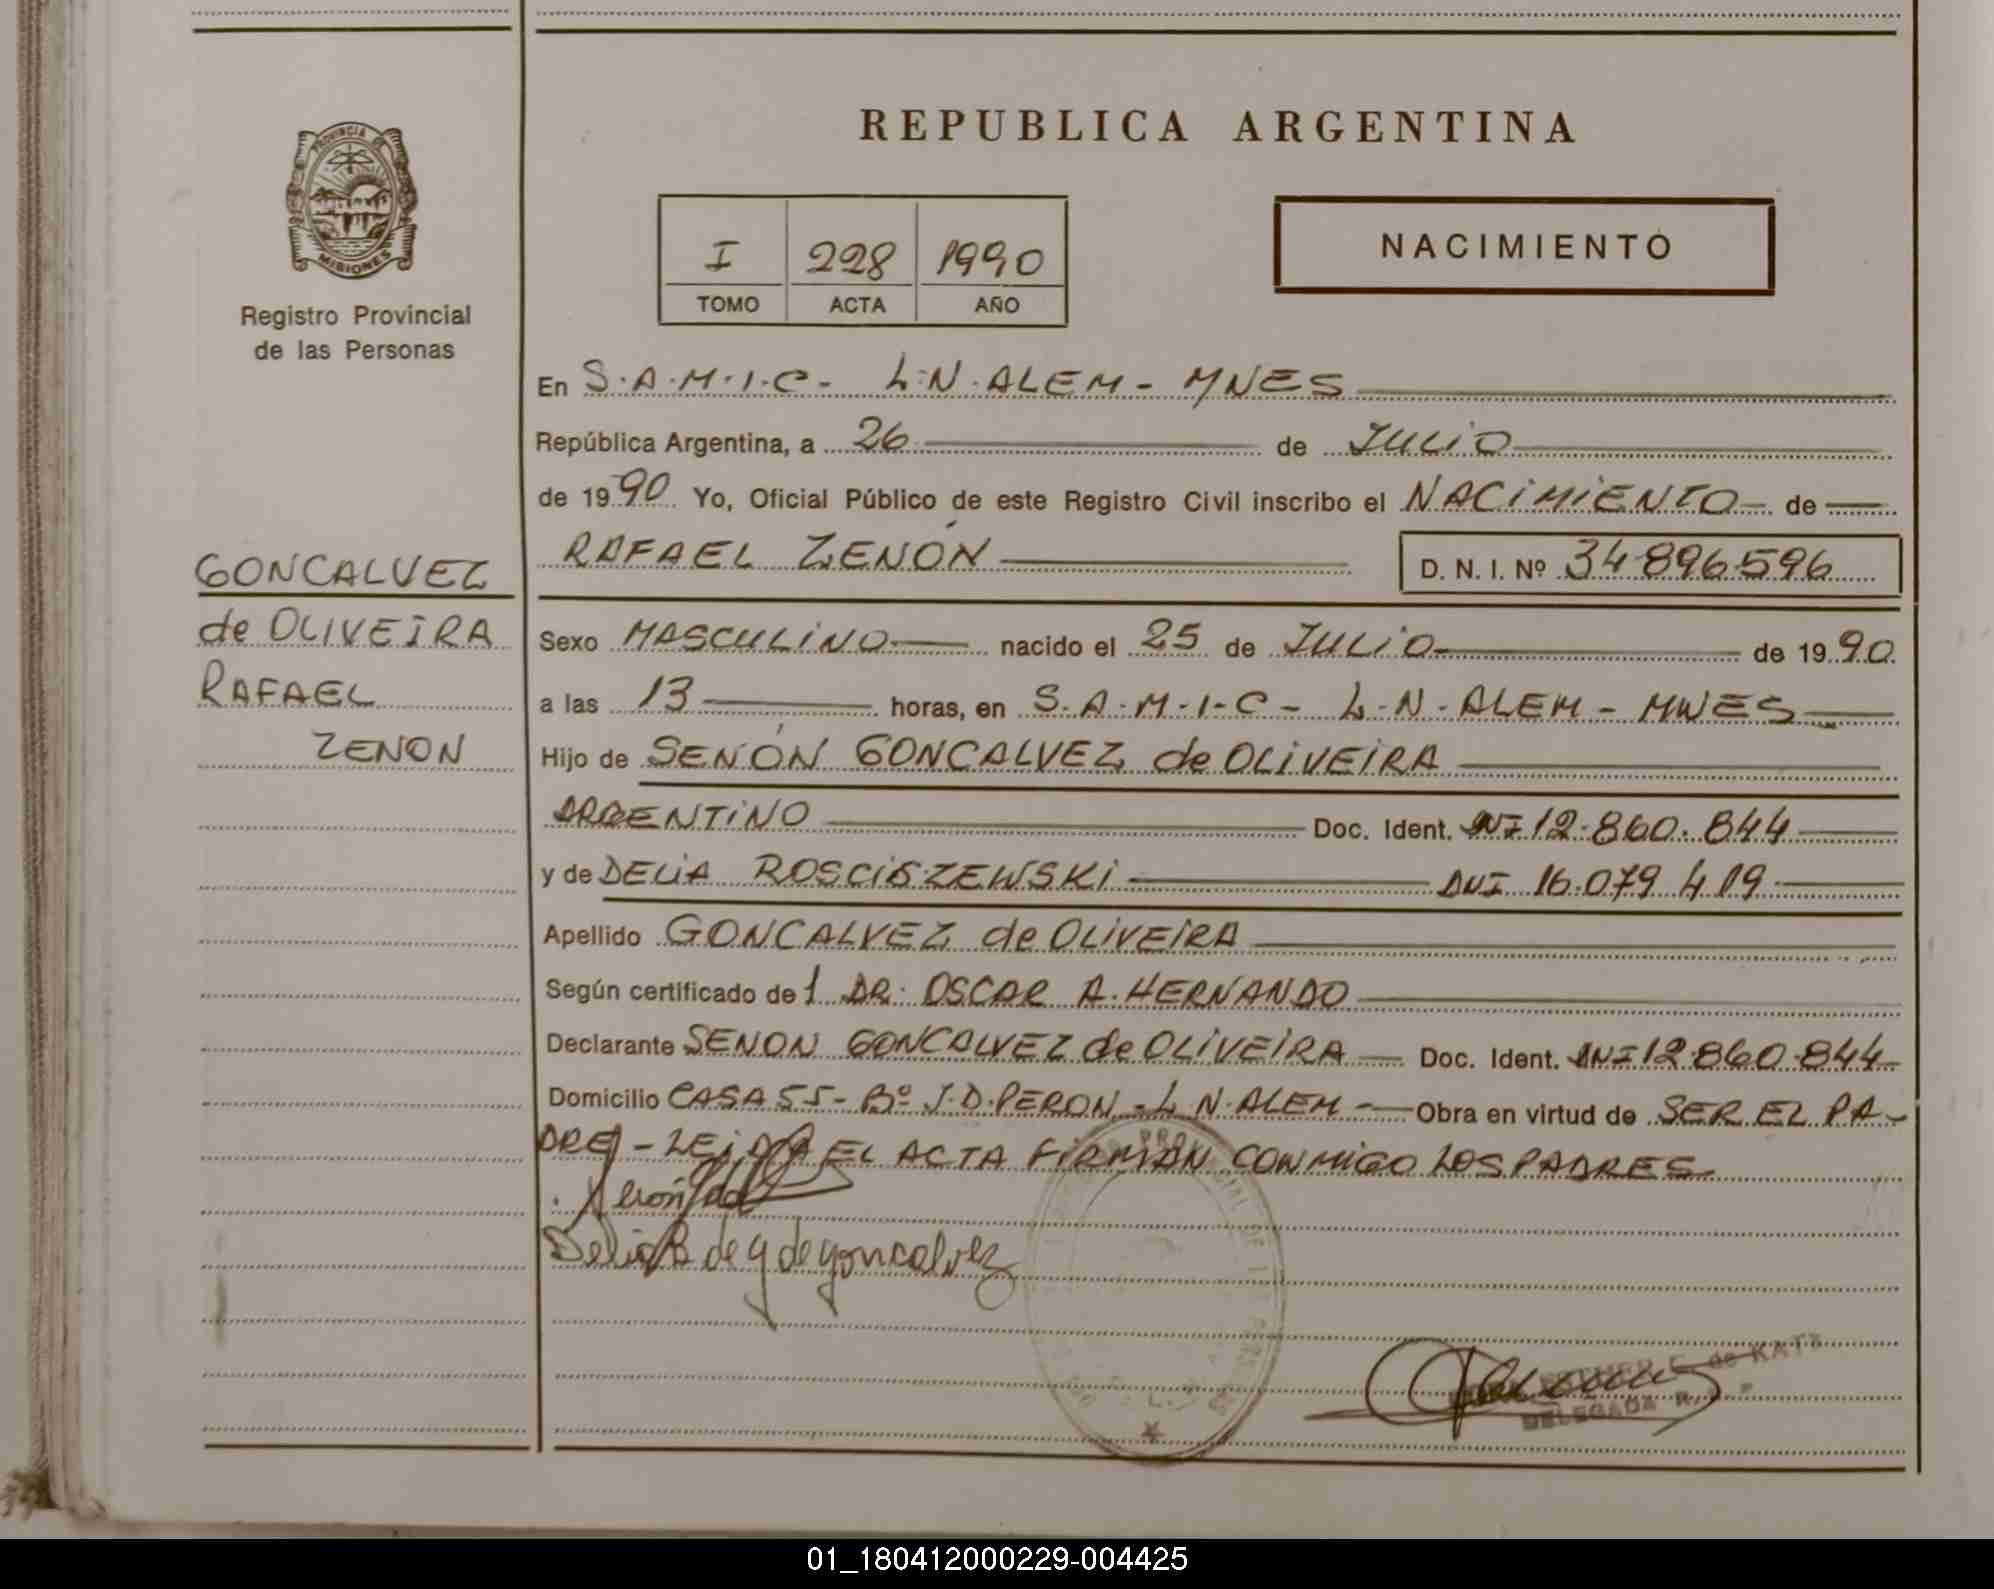 REPUBLICA ARGENTINA
PROVINCIA DE
MISIONES
Registro Provincial
de las Personas
I 228 1990
TOMO ACTA AÑO
NACIMIENTO
En S.A.M.I.C- L.N.ALEM- MNES
República Argentina, a 26 de JULIO
de 1990 Yo, Oficial Público de este Registro Civil inscribo el NACIMIENTO de
RAFAEL ZENÓN D. N. I. Nº 34.896.596
GONCALVEZ
de OLIVEIRA
RAFAEL
ZENON
Sexo MASCULINO nacido el 25 de JULIO de 1990
a las 13 horas, en S.A.M.I.C- L.N.ALEM- MNES
Hijo de SENÓN GONCALVEZ de OLIVEIRA
ARGENTINO Doc. Ident. DNI 12.860.844
y de DELIA ROSCISZEWSKI DNI 16.079.419
Apellido GONCALVEZ de OLIVEIRA
Según certificado de 1 DR. OSCAR A. HERNANDO
Declarante SENON GONCALVEZ de OLIVEIRA Doc. Ident. DNI 12.860.844
Domicilio CASA 55- Bº J.D.PERON - L N.ALEM - Obra en virtud de SER EL PA-
DRE - LEIDA EL ACTA FIRMAN CONMIGO LOS PADRES.
Delia R de g de goncalvez
de KATZ
DELEGADA R.
01_180412000229-004425